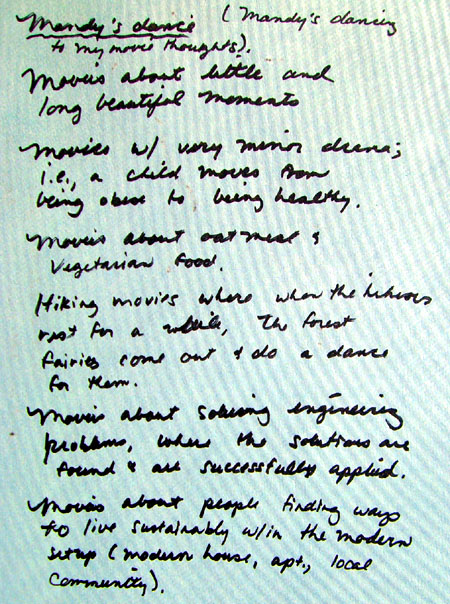 Mandy's dance (Mandy's dancing
to my movie thoughts).
Movies about little and
long beautiful moments
Movies w/ very minor drama;
i.e., a child moves from
being obese to being healthy.
Movies about oatmeal &
vegetarian food.
Hiking movies where when the hikers
rest for a while, the forest
fairies come out & do a dance
for them.
Movies about solving engineering
problems, where the solutions are
found & are successfully applied.
Movies about people finding ways
to live sustainably w/in the modern
setup (modern house, apt., local
community).